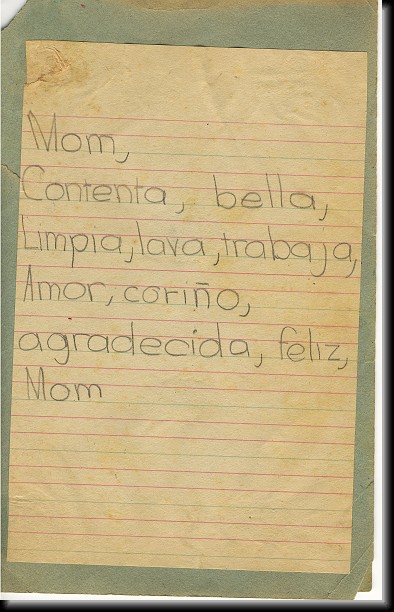 Mom,
Contenta, bella,
Limpia, lava, trabaja,
Amor, coriño,
agradecida, feliz,
Mom